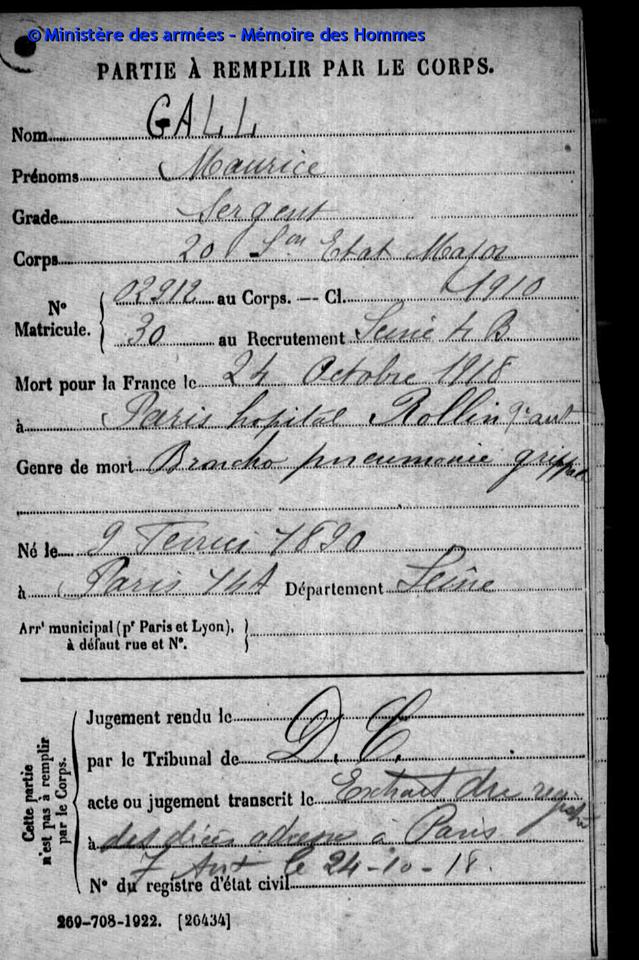 © Ministère des armées - Mémoire des Hommes
PARTIE À REMPLIR PAR LE CORPS.
Nom GALL
Prénoms Maurice
Grade Sergent
Corps 20 Son Etat Major
N° Matricule. { 02912 au Corps. — Cl. 1910
30 au Recrutement Seine 4 B.
Mort pour la France le 24 Octobre 1918
à Paris hopital Rollin
Genre de mort Broncho pneumonie grippale
Né le 9 Fevrier 1890
à Paris 14 Département Seine
Arrt municipal (pr Paris et Lyon), }
à défaut rue et N°.
Cette partie n'est pas à remplir par le Corps.
Jugement rendu le
par le Tribunal de D. C.
acte ou jugement transcrit le Extrait du registre
à des décès à Paris
7 Art le 24-10-18.
N° du registre d'état civil
269-708-1922. [26434]